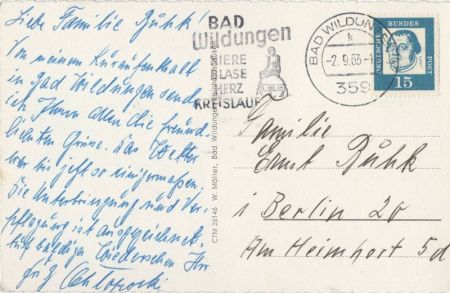 Liebe Familie Buhk!
Von meinem Kuraufenthalt
in Bad Wildungen sende
ich Ihnen allen die freund
lichsten Grüße. Das Wetter
war bis jetzt so einigermaßen,
die Unterbringung und Ver
pflegung ist ausgezeichnet.
Auf baldiges Wiedersehen Ihr
BAD
Wildungen
NIERE
BLASE
HERZ
KREISLAUF
BAD WILDUNGEN
k
-2.9.63-
359
DEUTSCHE BUNDESPOST
15
CTM 26146 W. Möller, Bad Wildungen
Familie
Ernst Buhk
1 Berlin 20
Am Heimhort 5d